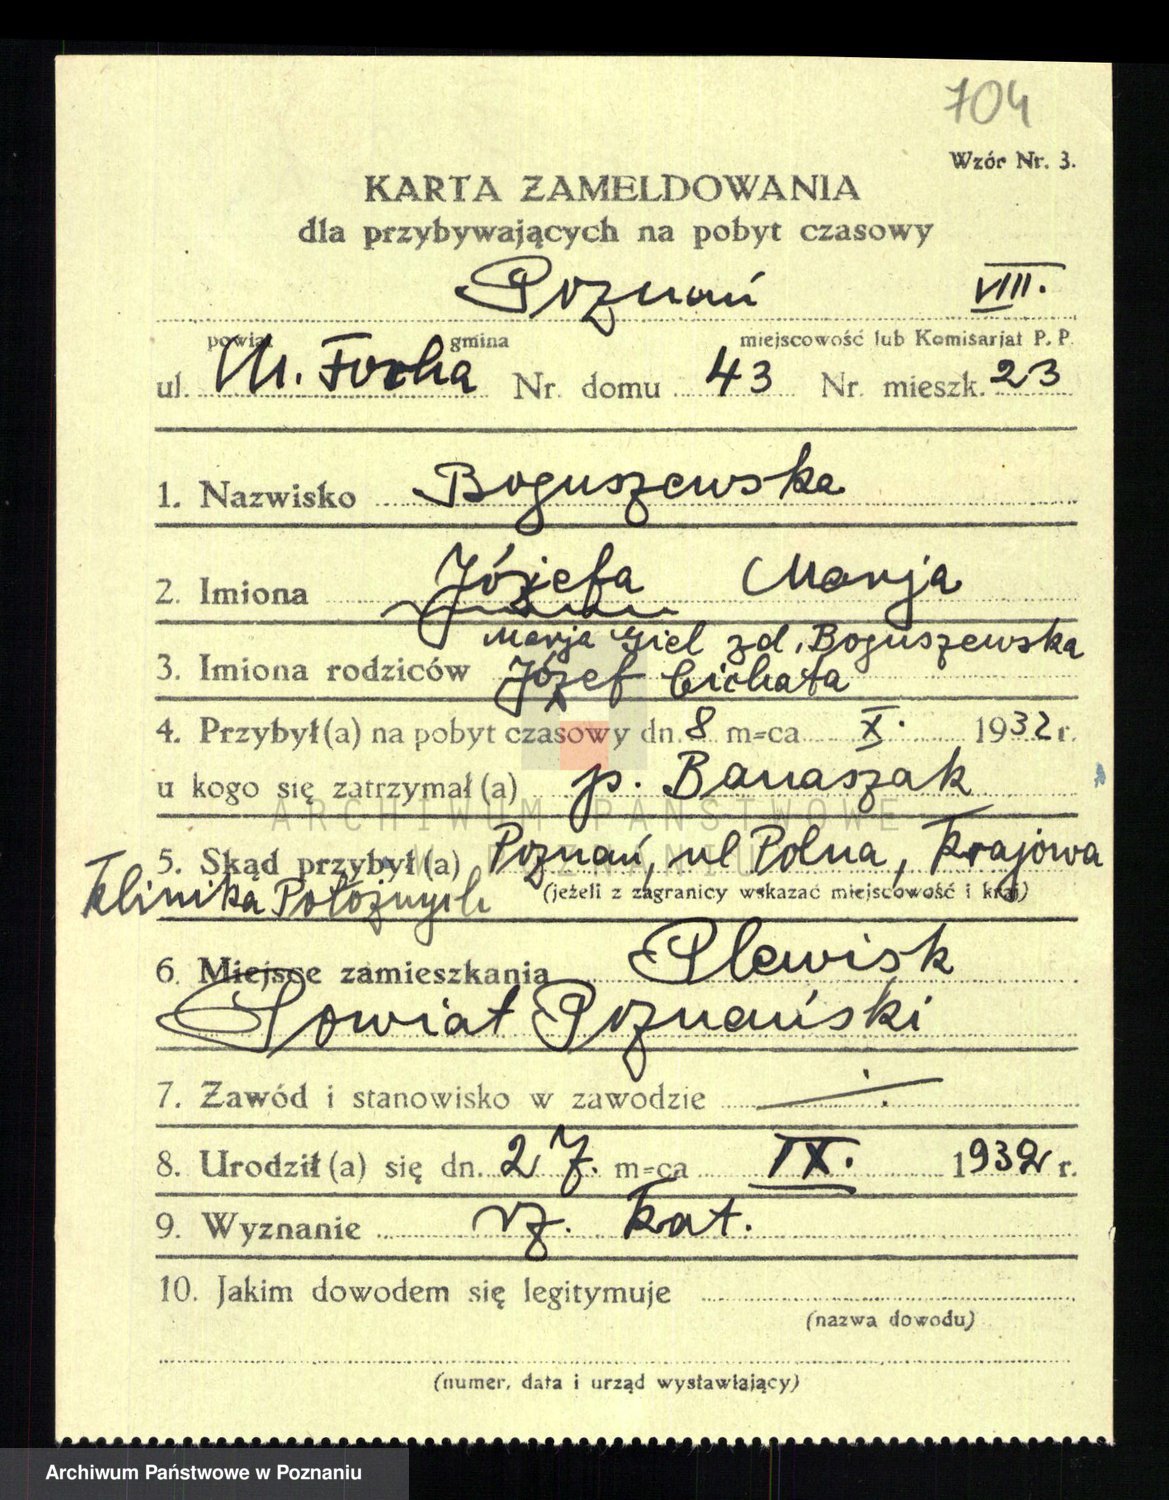 704
Wzór Nr. 3.
KARTA ZAMELDOWANIA
dla przybywających na pobyt czasowy
Poznań VIII.
powiat gmina miejscowość lub Komisarjat P. P.
ul. M. Focha Nr. domu 43 Nr. mieszk. 23
1. Nazwisko Boguszewska
2. Imiona Józefa Marja
Marja zd. Boguszewska
3. Imiona rodziców Józef Cichata
4. Przybył(a) na pobyt czasowy dn. 8 m=ca X. 1932 r.
u kogo się zatrzymał(a) p. Banaszak
ARCHIWUM PAŃSTWOWE
W POZNANIU
5. Skąd przybył(a) Poznań, ul Polna, Krajowa
Klinika Położnych (jeżeli z zagranicy wskazać miejscowość i kraj)
6. Miejsce zamieszkania Plewisk
Powiat Poznański
7. Zawód i stanowisko w zawodzie
8. Urodził(a) się dn. 27. m=ca IX. 1932 r.
9. Wyznanie rz. kat.
10. Jakim dowodem się legitymuje
(nazwa dowodu)
(numer, data i urząd wystawiający)
Archiwum Państwowe w Poznaniu